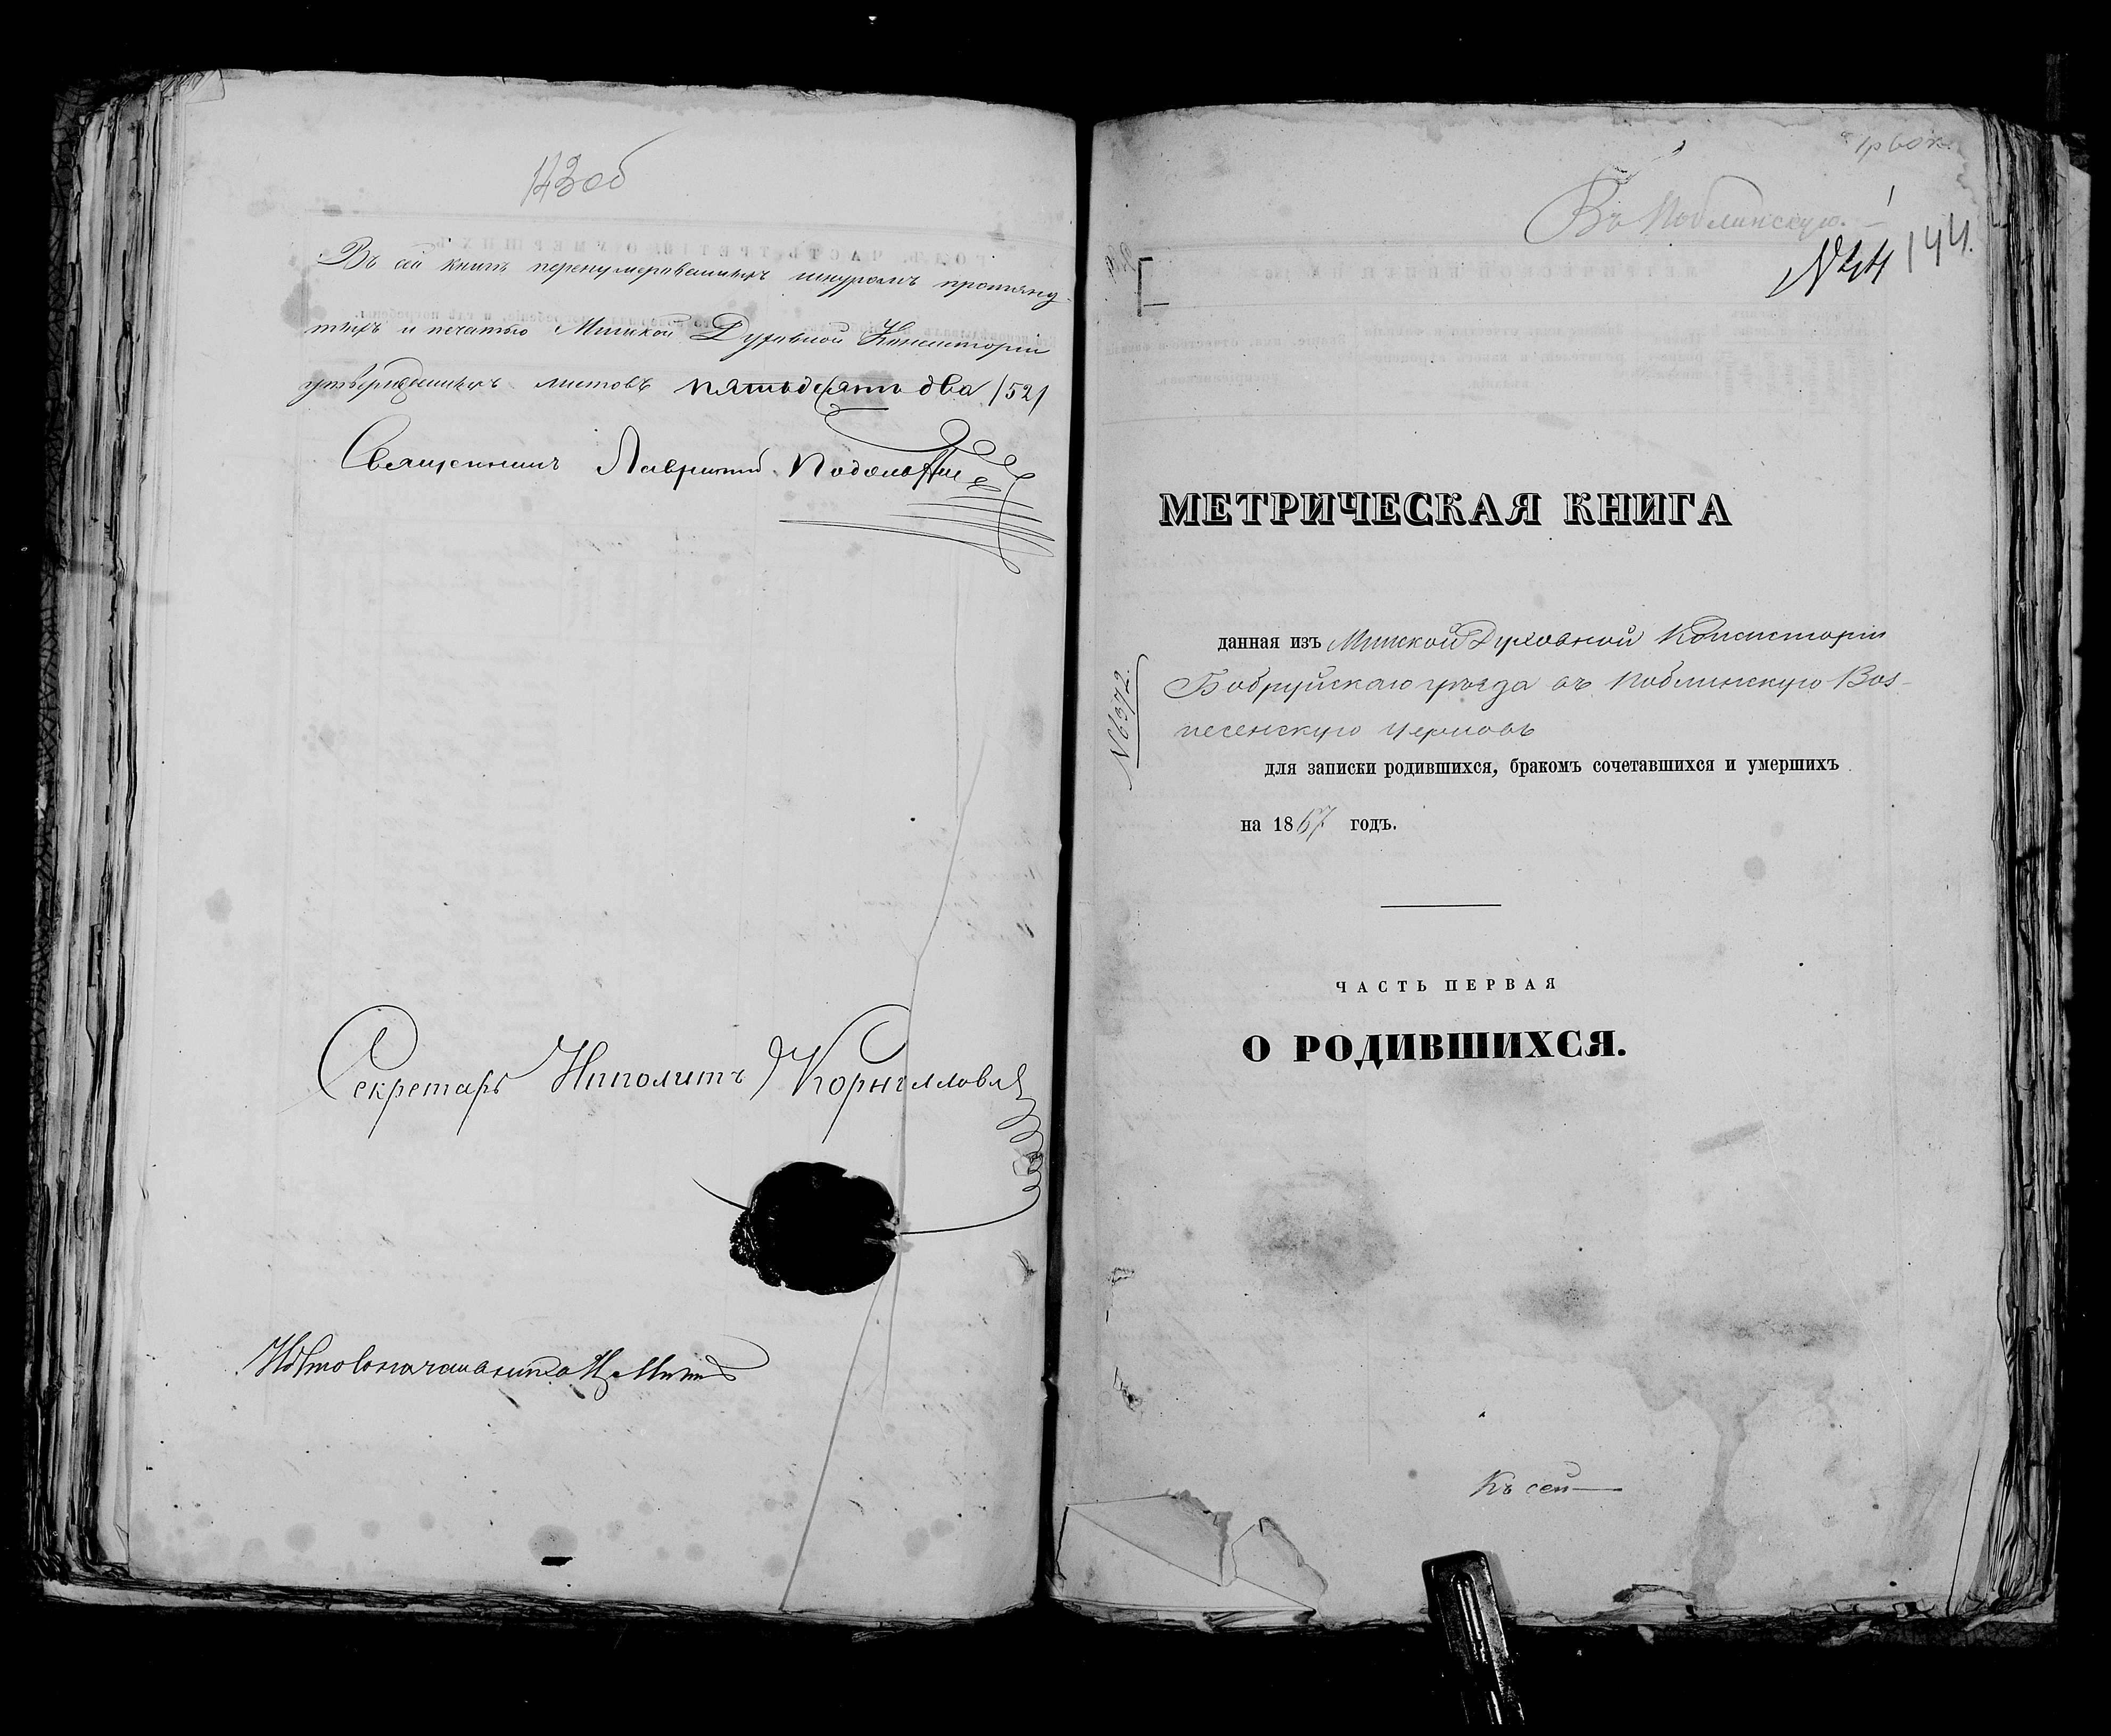 143об
Въ сей книгѣ перенумерованныхъ шнуромъ протяну-
тыхъ и печатью Минской Духовной Консисторіи
утвержденныхъ листовъ пятьдесятъ два /52/
Священникъ Лаврентій
Секретарь Ипполитъ Корниловъ
Въ Коблинскую.
1
№44 144.
МЕТРИЧЕСКАЯ КНИГА
данная изъ Минской Духовной Консисторіи
Бобруйскаго уѣзда въ Коблинскую Воз-
несенскую церковь
№6372.
для записки родившихся, бракомъ сочетавшихся и умершихъ
на 1867 годъ.
ЧАСТЬ ПЕРВАЯ
О РОДИВШИХСЯ.
Къ сей